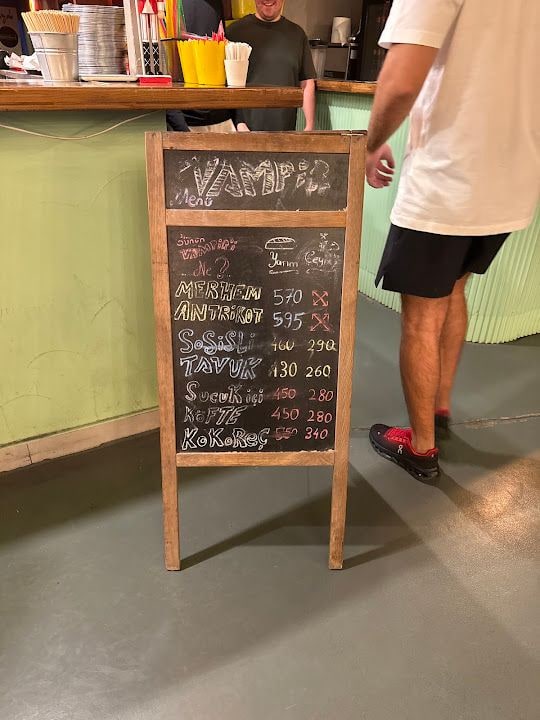 VAMPİR
Menü
Günün
VAMPİRİ
Ne ?
Yarım Çeyrek
MERHEM 570
ANTRİKOT 595
SoSiSLi 400 290
TAVUK 430 260
SuCuK içi 450 280
KöFTE 450 280
KoKoReÇ 550 340